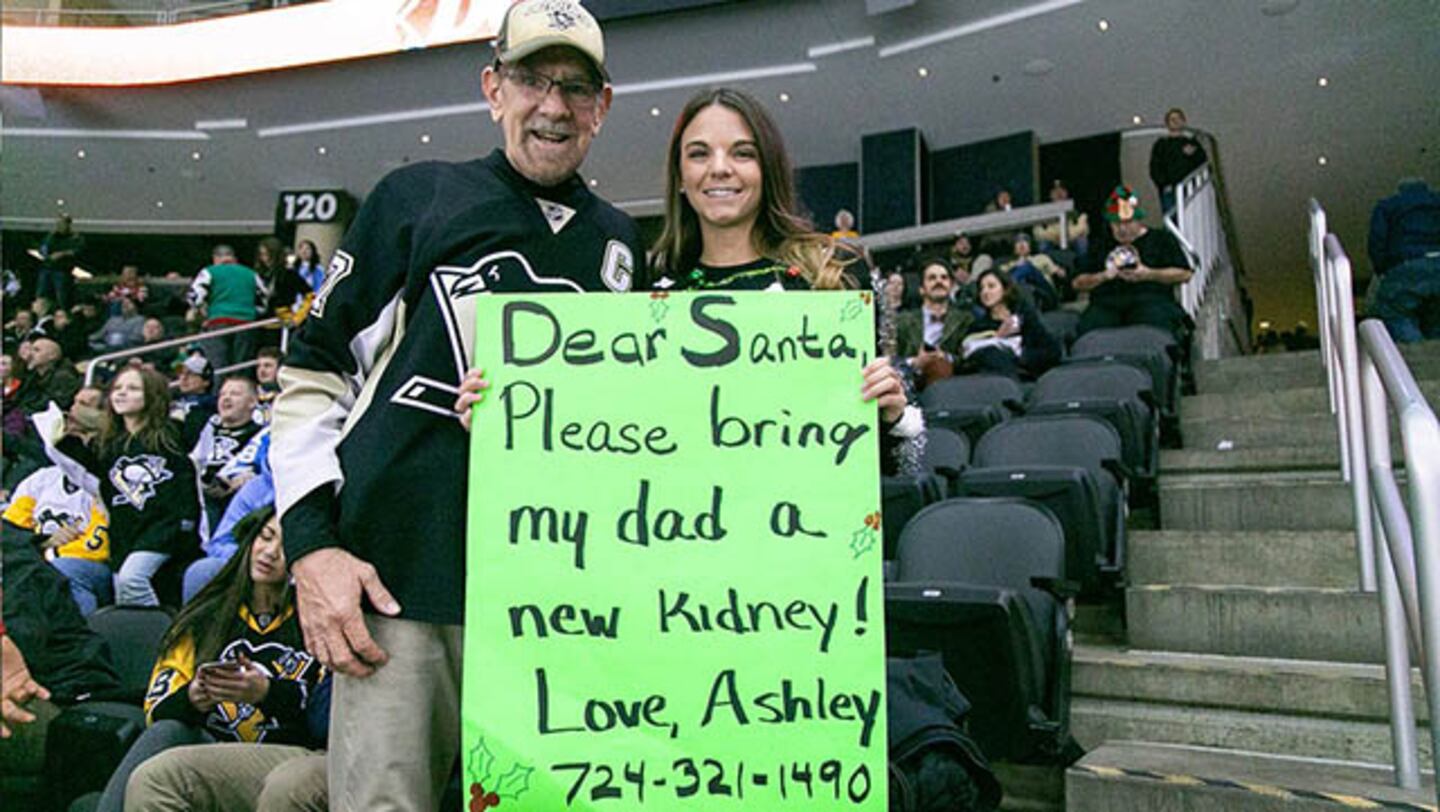 120
C
Dear Santa,
Please bring
my dad a
new Kidney!
Love, Ashley
724-321-1490